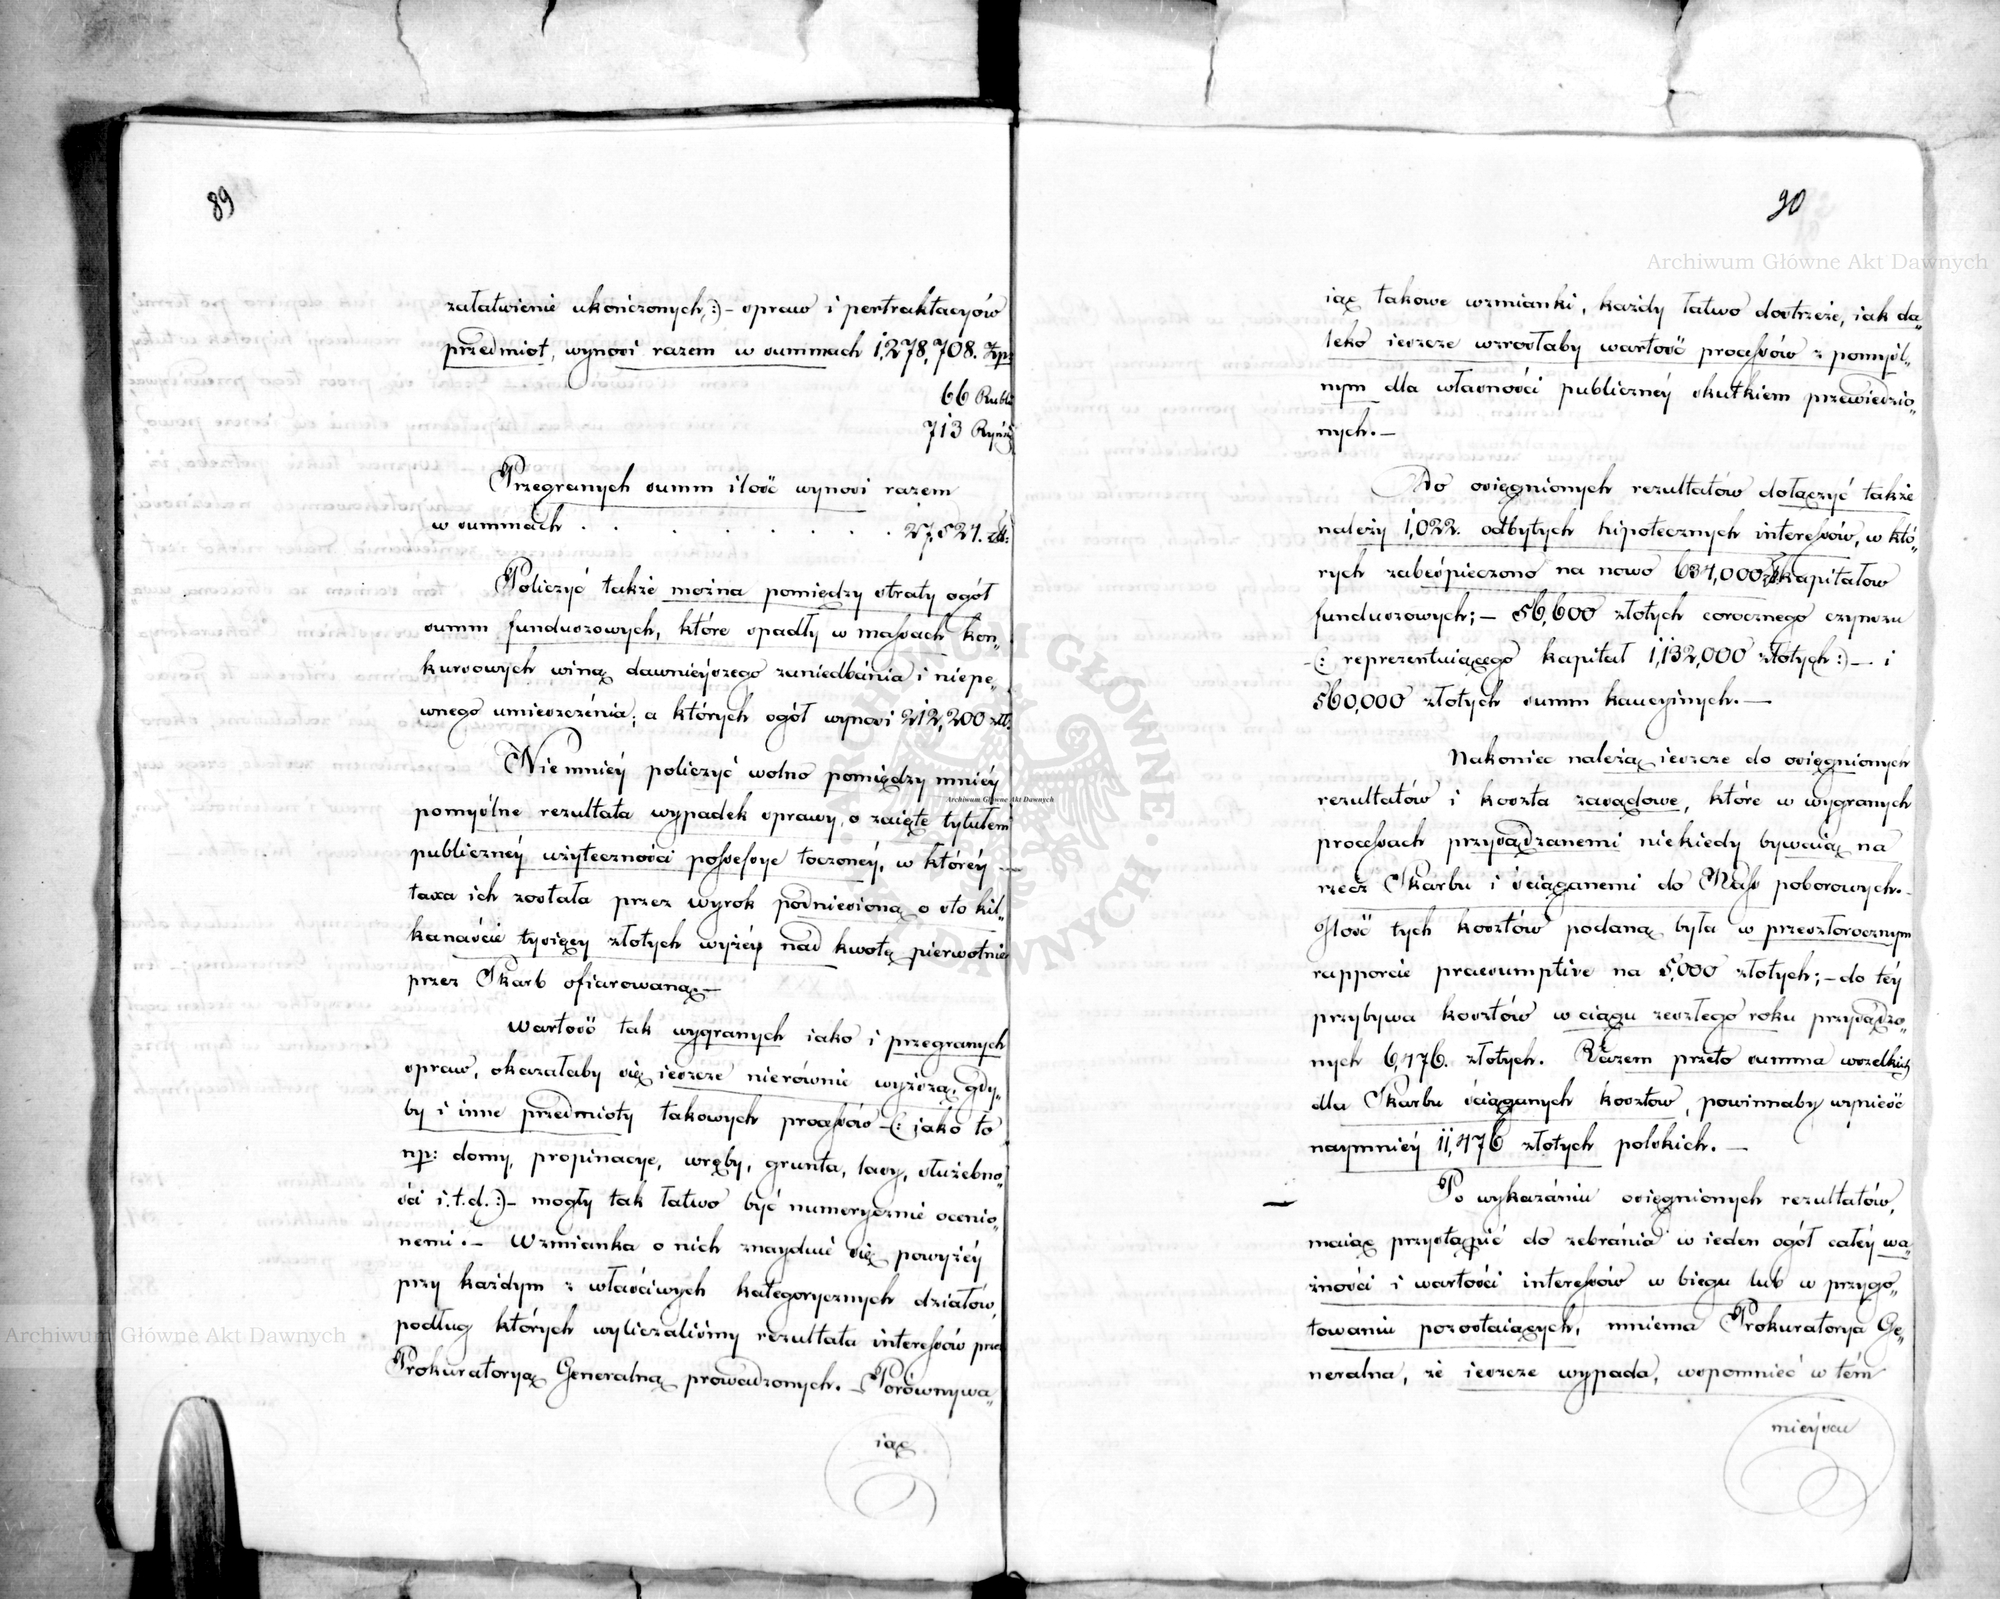 89
załatwienie ukończonych :)- spraw i pertraktacyów
przedmiot, wynosi razem w summach 1,278,708. Złp:
66 Rubli
713 Ryński
Przegranych summ ilość wynosi razem
w summach . . . . . . . . 27,527. złt:
Policzyć także można pomiędzy straty ogół
summ funduszowych, które spadły w massach kon„
kursowych winą dawnieyszego zaniedbania i niepe„
wnego umieszczenia; a których ogół wynosi 212,200 złt.
Niemniéy policzyć wolno pomiędzy mniéy
pomyślne rezultata wypadek sprawy, o zaięte tytułem
publicznéy użyteczności possessye toczonéy, w któréy —
taxa ich została przez wyrok podniesioną o sto kil„
kanaście tysięcy złotych wyżéy nad kwotę pierwotnie
przez Skarb ofiarowaną.—
Wartość tak wygranych iako i przegranych
spraw, okazałaby się ieszcze nierównie wyższą, gdy„
by i inne przedmioty takowych processów -(: jako to
np: domy, propinacye, wręby, grunta, lasy, służebno„
ści i.t.d. :)- mogły tak łatwo być numerycznie ocenio„
nemi.— Wzmianka o nich znayduie się powyżéy
przy każdym z właściwych kategorycznych działów,
podług których wyliczaliśmy rezultata interessów przez
Prokuratoryą Generalną prowadzonych. — Porównywa„
iąc
90
iąc takowe wzmianki, każdy łatwo dostrzeże, iak da„
leko ieszcze wzrosłaby wartość processów z pomyśl„
nym dla własności publicznéy skutkiem przewiedzio„
nych.—
Do osiągnionych rezultatów dołączyć także
należy 1,022. odbytych hipotecznych interessów, w któ„
rych zabeśpieczono na nowo 634,000 złt. kapitałów
funduszowych;— 56,600 złotych corocznego czynszu
-(: reprezentuiącego kapitał 1,132,000 złotych :)— i
560,000 złotych summ kaucyinych.—
Nakoniec należą ieszcze do osiągnionych
rezultatów i koszta zasądowe, które w wygranych
processach przysądzanemi niekiedy bywaią na
rzecz Skarbu i ściąganemi do Kass poborowych.—
Ilość tych kosztów podaną była w przeszłorocznym
rapporcie praesumptive na 5,000 złotych;— do téy
przybywa kosztów w ciągu zeszłego roku przysądzo„
nych 6,476. złotych. Razem przeto summa wszelkich
dla Skarbu ściąganych kosztów, powinnaby wynieść
naymniéy 11,476 złotych polskich.—
Po wykazaniu osiągnionych rezultatów,
maiąc przystąpić do zebrania w ieden ogół całéy wa„
żności i wartości interessów w biegu lub w przygo„
towaniu pozostaiących, mniema Prokuratorya Ge„
neralna, że ieszcze wypada, wspomnieć w tém
mieyscu
Archiwum Główne Akt Dawnych
Archiwum Główne Akt Dawnych
Archiwum Główne Akt Dawnych
ARCHIWUM GŁÓWNE AKT DAWNYCH